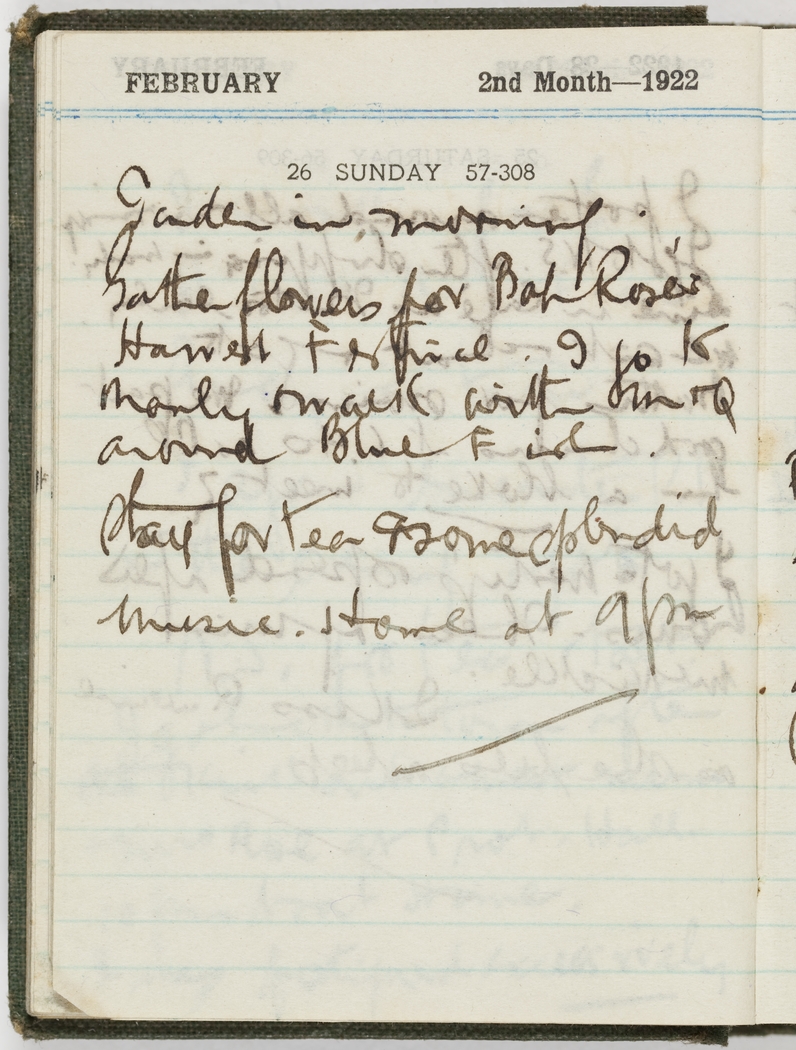 FEBRUARY 2nd Month—1922
26 SUNDAY 57-308
Garden in morning.
Gather flowers for Rose's
Harvest Festival. I go to
Manly & walk with
around Blue Fish.
Stay for tea & some splendid
music. Home at 9 pm